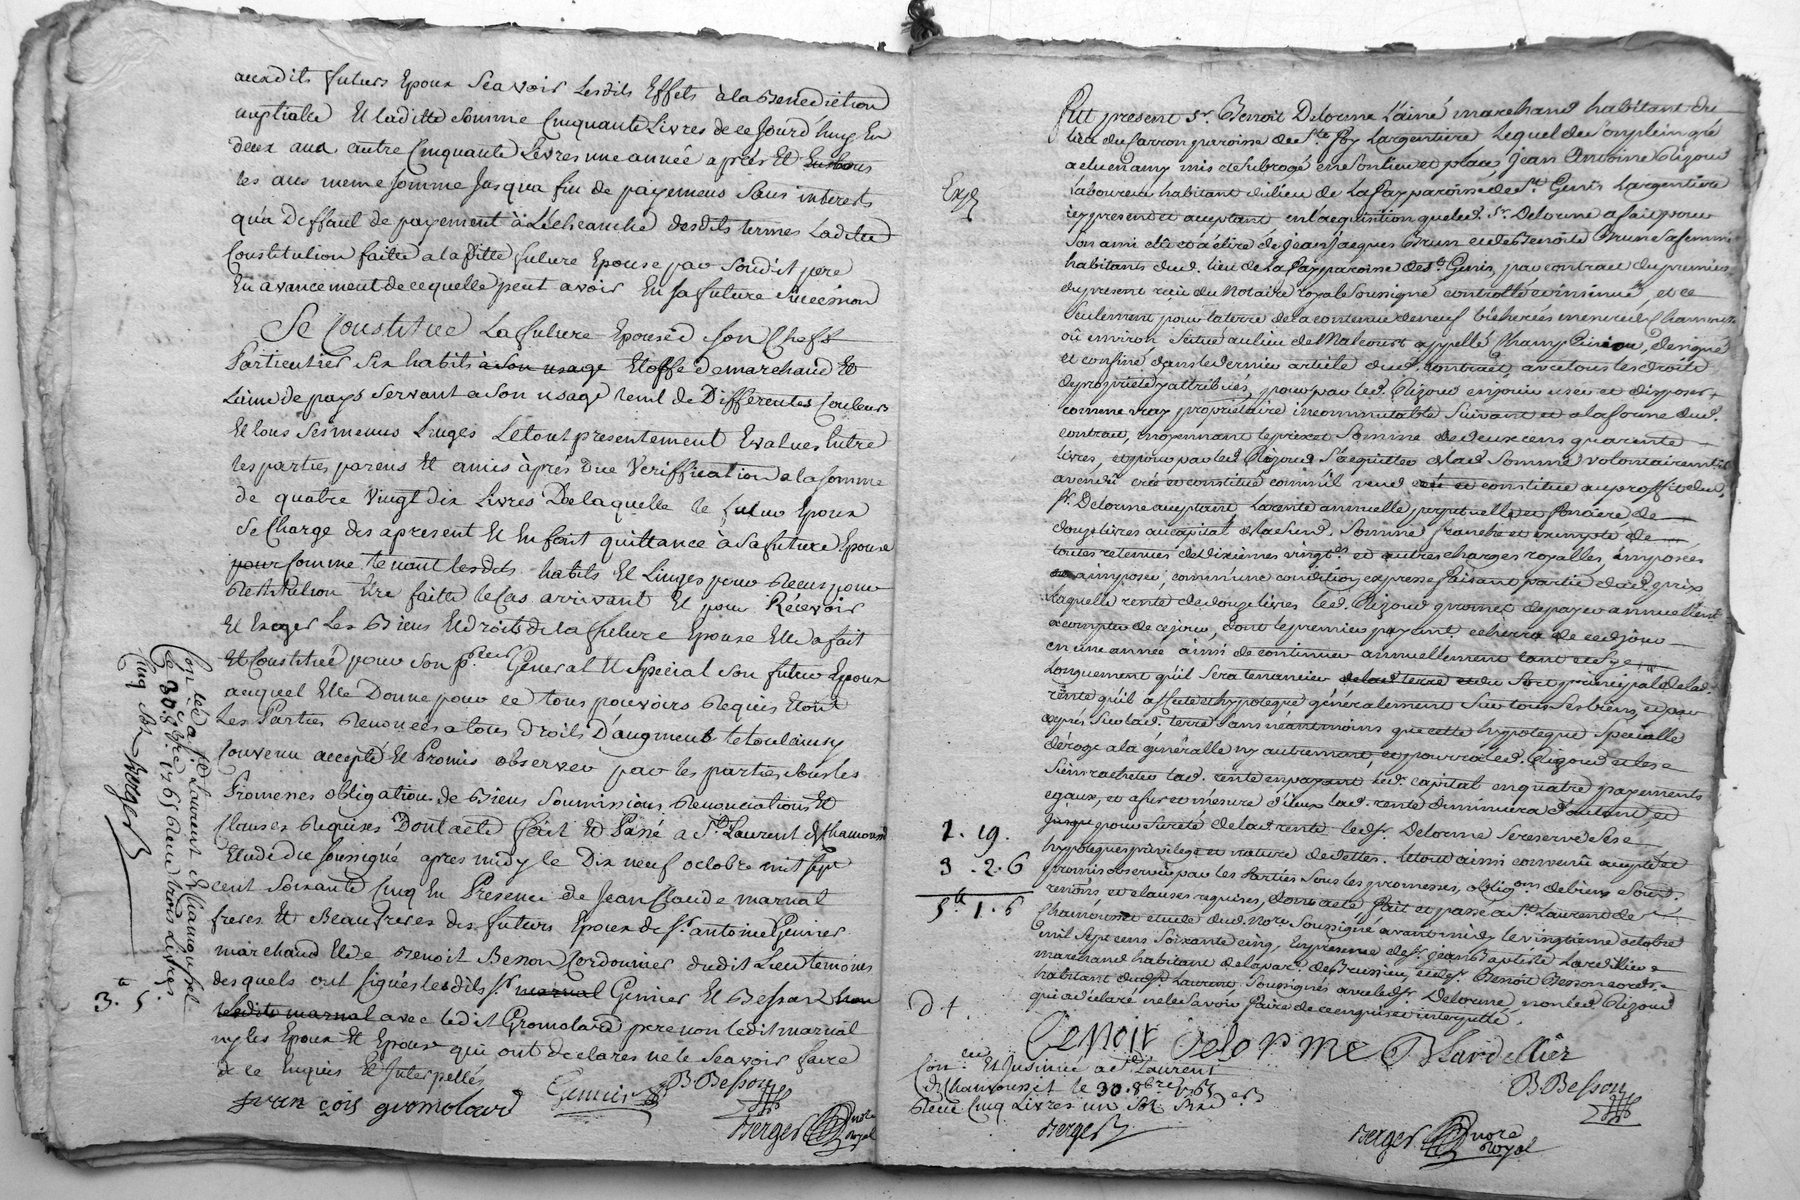 auxdits futurs Epoux Seavoir Lesdits Effets à la Benediction
nuptialle Et laditte Somme Cinquante Livres de ce Jourd'huy En
deux ans autre Cinquante Livres une année après Et
les ans meme Somme Jusqua fin de payemens Sans interests
qu'a Deffaut de payement à L'écheanche desdits termes Laditte
Constitution faitte a la ditte future Epouse par Sondit pere
En avancement de ce quelle peut avoir En Sa future Succession
Se Constitue La future Epouse de Son Chefs
Particuliers Six habits à son usage Etoffe de marchand Et
Laine de pays Servant a Son usage tout de Différentes Couleurs
Et tous Ses menus Linges Le tout presentement Evalués Entre
les parties parens Et amis àprès Due Veriffication a la Somme
de quatre vingt dix Livres De laquelle le futur Epoux
Se Charge des apresent Et En fait quittance à Sa future Epouse
pour Comme tenant lesdits habits Et Linges pour Recus pour
Restitution Etre faitte le Cas arrivant Et pour Récevoir
Et Exiger Les Biens Et droits de la future Epouse Elle a fait
Et Constitué pour Son p.reur General Et Special Son futur Epoux
auquel Elle Donne pour ce tous pouvoirs Requis Etant
Les Parties Renoncées a tous Droits D'augment le tout ainsy
Convenu accepté Et Promis observer par les parties Sous les
Promesses obligations de Biens Soumissions Renonciations Et
Clauses Requises Dont acte fait Et Passé a St Laurent de Chamousset
Etude du Soussigné apres midy le Dix neuf octobre mil Sept
cent Soixante Cinq En Presence de Jean Claude marnat
freres Et Beaufreres des futurs Epoux de Sr. antoine Genier
marchand Et de Benoit Besson Cordonnier dudit Lieu temoins
desquels ont Signés lesdits Sr. marnat Genier Et Besson
ledit marnat avec ledit Gromolard pere non ledit marnat
ny les Epoux Et Epouse qui ont declarés ne le Seavoir faire
de ce Enquis Et Interpellés
francois gromolard Genier B Besson
Berger nore Royal
Con.lé a St. Laurent de Chamousset
Le 30. 8bre 1765 Recu trois Livres
Cinq Sols Berger
3.lt 5.s
Exp.é
Fut present Sr. Benoit Delorme L'ainé marchand habitant du
lieu du Sarron paroisse de Ste. Foy Largentiere Lequel de Son plein gré
a elu en amy mis et Subrogé en Son lieu et place, Jean Antoine Rigoud
Laboureur habitant du lieu de La Fay paroisse de St. Genis Largentiere
icy present et acceptant en l'acquisition que led. Sr. Delorme a fait pour
Son ami élu et a élire de Jean Jacques Brun et de Benoite Brun Sa femme
habitants dud. lieu de La Fay paroisse de St. Genis, par contract du premier
du present reçu du Notaire royal Soussigné controllé et insinué, et ce
Seulement pour la terre de la contenue de neuf bicherées mesure de Chamousset
où environ Scituée au lieu de Malcourt appellé Champ, désigné
et confiné dans le dernier article dud. contract, avec tous les droits
de proprieté y attribués, pour par led. Rigoud en jouir user et disposer
comme vray propriétaire incommutable Suivant et a la forme dud.
contract, moyennant le prix et Somme de deux cens quarente
livres, et pour par led. Rigoud S'acquitter de lad. Somme volontairement il
a vendu créé et constitué comm'il vend crée et constitue au proffit dud.
Sr. Delorme acceptant La rente annuelle, perpetuelle et fonciere de
douze livres au capital de lad. Somme franche et exempte de
toutes retenues de dixiemes vingt.es et autres charges royalles, imposées
a imposer comm'une condition expresse faisant partie dud. prix
Laquelle rente de douze livres led. Rigoud promet de payer annuellement
a compter de ce jour, dont le premier payant écherra de ce d. jour
en une année ainsi de continuer annuellement tant et Sy
Longuement qu'il Sera tenancier de lad. terre et du Sort principal de lad.
rente qu'il affecte et hypoteque généralement Sur tous Ses biens, et par
exprès Sur lad. terre Sans néantmoins que cette hypoteque Spécialle
déroge a la généralle ny autrement, et pourra led. Rigoud et les
Siens racheter lad. rente en payant led. capital en quatre payements
egaux, et a fur et mésure d'iceux lad. rente diminuera d'autant et
jusque pour Sureté de lad. rente led. Sr. Delorme Se reserve Ses
hypoteques privilege et nature de dettes. le tout ainsi convenu accepté et
promis observer par les Parties Sous les promesses, oblig.ons de biens Soum.
renons. et clauses requises, dont acte fait et passé a St. Laurent de
Chamousset etude dud. Nore. Soussigné avant midy le vingtieme octobre
mil Sept cens Soixante cinq, En présence de Sr. Jean Baptiste Lardellier
marchand habitant de la par. de Brussieu, et de Sr. Benoit Besson cord.
habitant dud. St. Laurent, Soussignés avec led. Sr. Delorme, non led. Rigoud
qui a déclaré ne le Savoir faire de ce enquis et interpellé.
2. 19.
3. 2. 6
5.lt 1. 6
Dt.
Benoit Delorme JB Lardellier
B Besson
Con.lé Et Insinué a St. Laurent
de Chamousset le 30. 8bre 1765
Recu Cinq Livres un Sol Six d.ers
Berger
Berger nore Royal